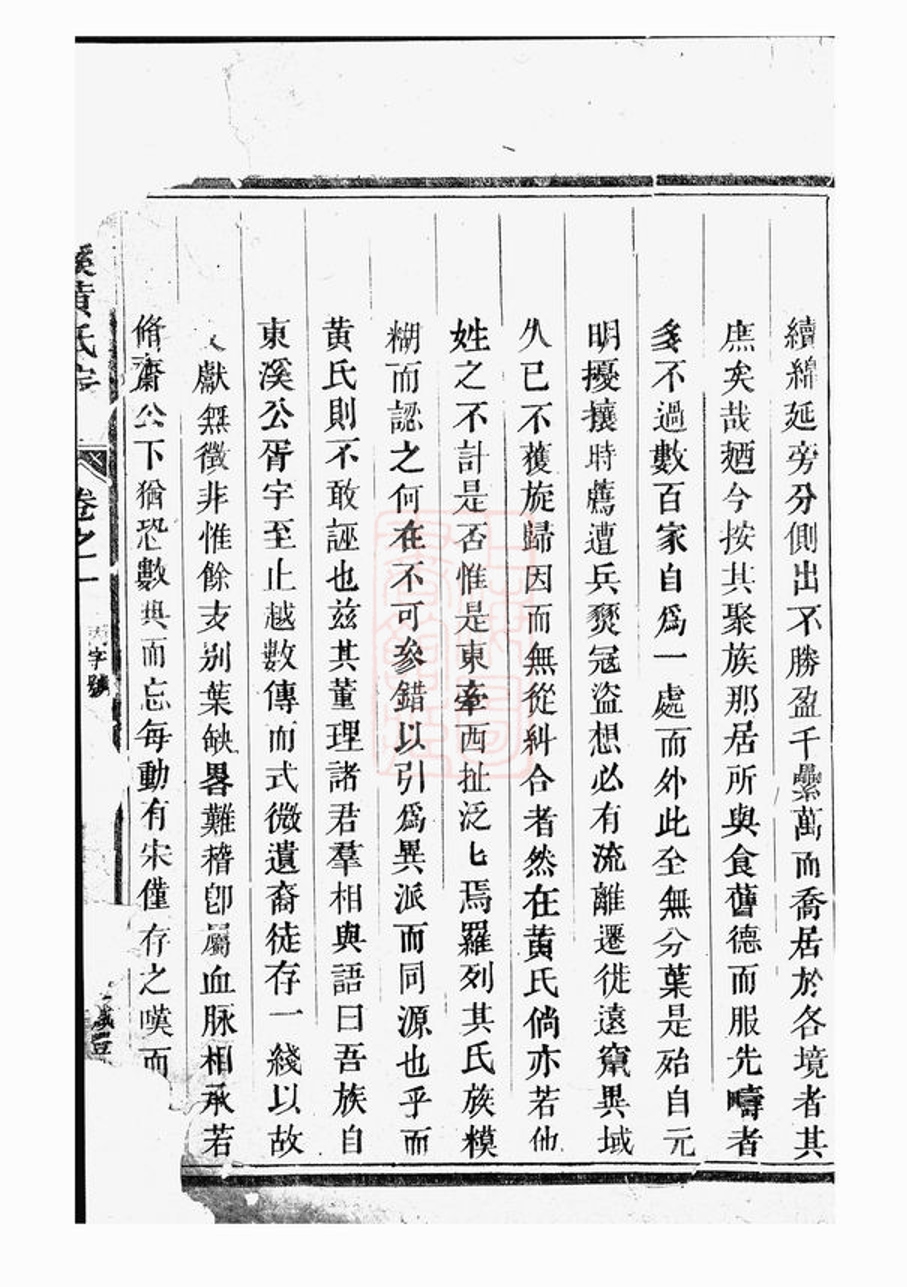 續綿延旁分側出不勝盈千纍萬而喬居於各境者其
庶矣哉廼今按其聚族那居所與食舊德而服先疇者
多不過數百家自爲一處而外此全無分葉是殆自元
明擾攘時薦遭兵燹冦盜想必有流離遷徙遠竄異域
久已不獲旋歸因而無從糾合者然在黃氏倘亦若他
姓之不計是否惟是東牽西扯泛匕焉羅列其氏族糢
糊而認之何在不可參錯以引爲異派而同源也乎而
黃氏則不敢誣也兹其董理諸君羣相與語曰吾族自
東溪公胥宇至止越數傳而式微遺裔徒存一綫以故
獻無徵非惟餘支别葉缺畧難稽卽屬血脉相承若
脩齋公下猶恐數典而忘每動有宋僅存之嘆而
溪黃氏宗
卷之一
字號
咸豐